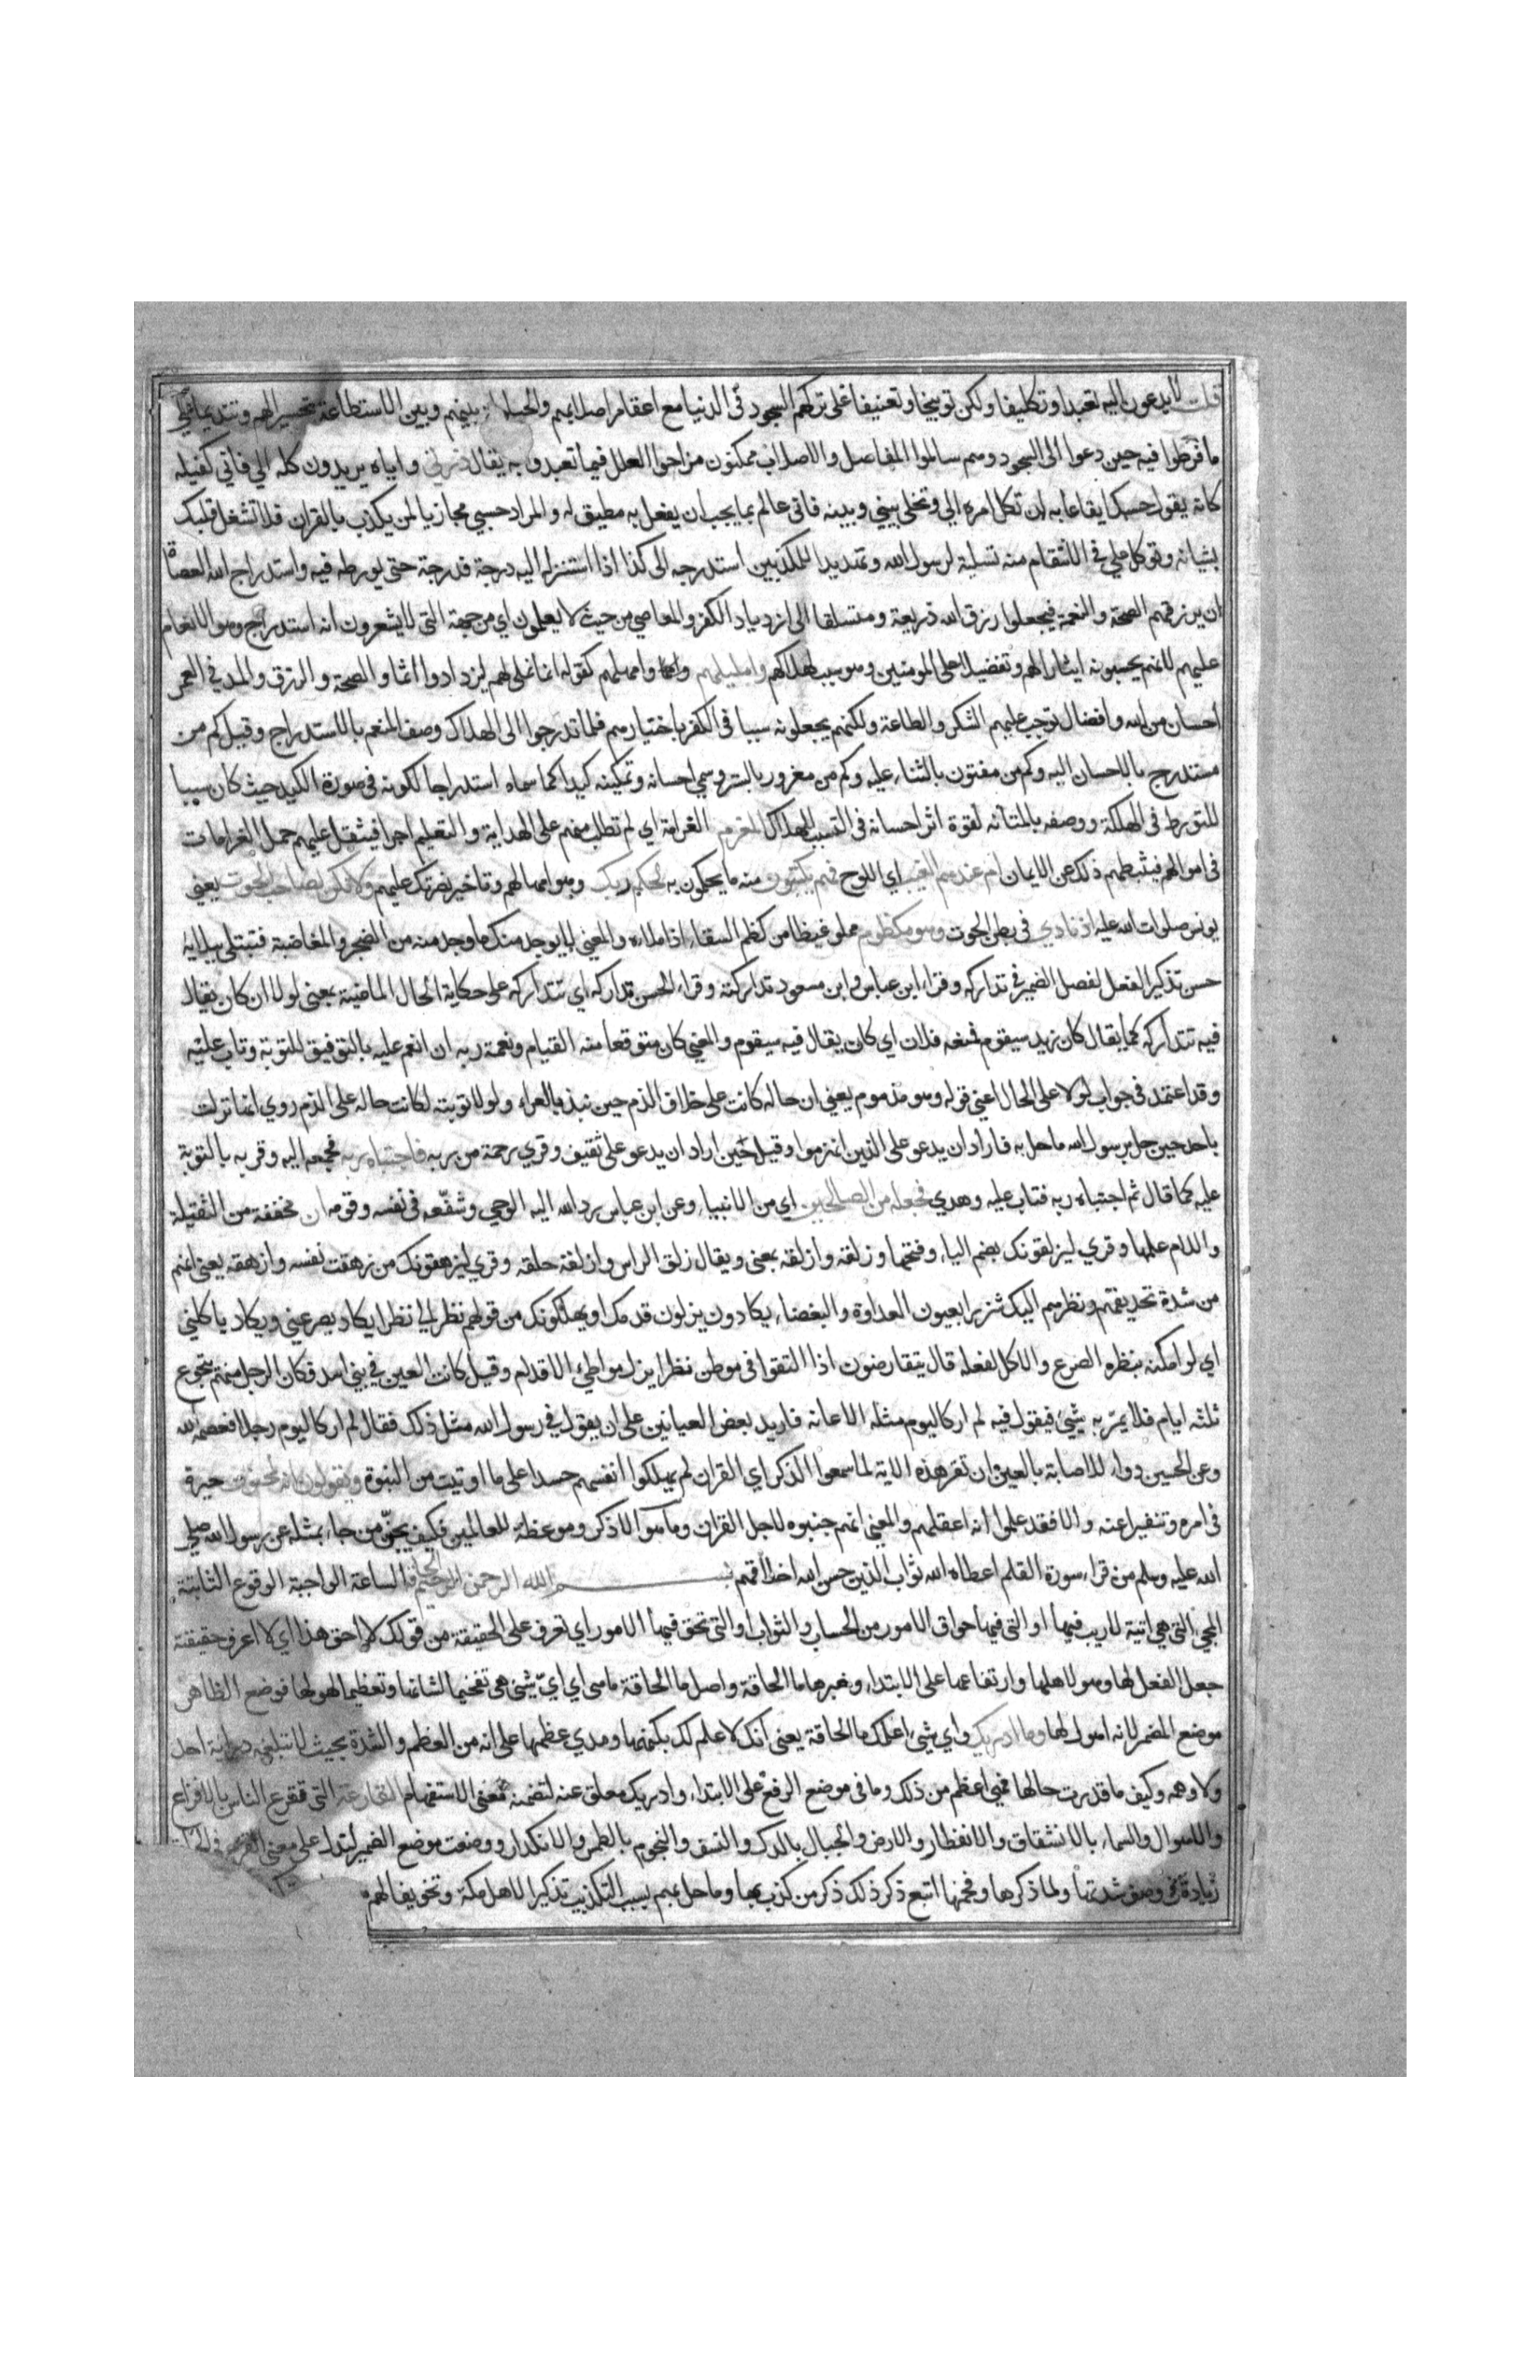 قلت لا يدعون اليه تعبدا وتكليفا ولكن توبيخا وتعنيفا على تركهم السجود في الدنيا مع اعقام اصلابهم والحيلولة بينهم وبين الاستطاعة تحسيرا لهم وتنديما على
ما فرطوا فيه حين دعوا الى السجود وهم سالموا المفاصل والاصلاب ممكنون مزاحوا العلل فيما تعبدوا به يقال ذرني واياه يريدون كله الي فاني كفيله
كانه يقول حسبك ايقاعا به ان تكل امره الي وتخلي بيني وبينه فاني عالم بما يجب ان يفعل به مطيق له والمراد حسبي مجازيا لمن يكذب بالقران فلا تشغل قلبك
بشانه وتوكل علي في الانتقام منه تسلية لرسول الله وتهديدا للمكذبين استدرجه الى كذا اذا استنزله اليه درجة فدرجة حتى يورطه فيه واستدراج الله العصاة
ان يرزقهم الصحة والنعمة فيجعلوا رزق الله ذريعة ومتسلقا الى ازدياد الكفر والمعاصي من حيث لا يعلمون اي من جهة التي لا يشعرون انه استدراج وهو الانعام
عليهم لانهم يحسبونه ايثارا لهم وتفضيلا على المومنين وهو سبب لهلاكهم واملي لهم وامهلهم كقوله انما نملي لهم ليزدادوا اثما والصحة والرزق والمد في العمر
احسان من الله وافضال توجب عليهم الشكر والطاعة ولكنهم يجعلونه سببا في الكفر باختيارهم فلما تدرجوا الى الهلاك وصف المنعم بالاستدراج وقيل كم من
مستدرج بالاحسان اليه وكم من مفتون بالثناء عليه وكم من مغرور بالستر وسمي احسانه وتمكينه كيدا كما سماه استدراجا لكونه في صورة الكيد حيث كان سببا
للتورط في الهلكة ووصفه بالمتانه لقوة اثر احسانه في التسبب للهلاك المغرم الغرامة اي لم تطلب منهم على الهداية والتعليم اجرا فيثقل عليهم حمل الغرامات
في اموالهم فيثبطهم ذلك عن الايمان ام عندهم الغيب اي اللوح فهم يكتبون منه ما يحكمون به لحكم ربك وهو امهالهم وتاخير نصرتك عليهم ولا تكن كصاحب الحوت يعني
يونس صلوات الله عليه اذ نادي في بطن الحوت وهو مكظوم مملو غيظا من كظم السقاء اذا ملاه والمعنى لا يوجد منك ما وجد منه من الضجر والمغاضبة فتبتلي ببلائه
حسن تذكير الفعل لفصل الضمير في تداركه وقراء ابن عباس وابن مسعود تداركته وقراء الحسن تداركه اي تتداركه على حكاية الحال الماضية بمعنى لولا ان كان يقال
فيه تتداركه كما يقال كان زيد سيقوم فمنعه فلان اي كان يقال فيه سيقوم والمعني كان متوقعا منه القيام ونعمة ربه ان انعم عليه بالتوفيق للتوبة وتاب عليه
وقد اعتمد في جواب لولا على الحال اعني قوله وهو مذموم يعني ان حاله كانت على خلاف الذم حين نبذ بالعراء ولولا توبته لكانت حاله على الذم روي انها نزلت
باحد حين حل برسول الله ما حل به فاراد ان يدعو على الذين انهزموا وقيل حين اراد ان يدعو على ثقيف وقري رحمة من ربه فاجتباه ربه فجمعه اليه وقربه بالتوبة
عليه كما قال ثم اجتباه ربه فتاب عليه وهدي فجعله من الصالحين اي من الانبياء وعن ابن عباس رد الله اليه الوحي وشفعه في نفسه وقومه ان مخففة من الثقيلة
واللام علمها وقري ليزلقونك بضم الياء وفتحها وزلقه وازلقه بمعنى ويقال زلق الراس وازلقه حلقه وقري ليزهقونك من زهقت نفسه وازهقه يعني انهم
من شدة تحديقهم ونظرهم اليك شزرا بعيون العداوة والبغضاء يكادون يزلون قدمك او يهلكونك من قولهم نظر الي نظرا يكاد يصرعني ويكاد ياكلني
اي لو امكنه بنظره الصرع والاكل لفعله قال يتقارضون اذا التقوا في موطن نظرا يزل مواطئ الاقدام وقيل كانت العين في بني اسد فكان الرجل منهم يتجوع
ثلثه ايام فلا يمر به شيئ فيقول فيه لم ار كاليوم مثله الا عانه فاريد بعض العيانين على ان يقول في رسول الله مثل ذلك فقال لم ار كاليوم رجلا فعصمه الله
وعن الحسين دواء الاصابة بالعين ان تقر هذه الاية لما سمعوا الذكر اي القران لم يملكوا انفسهم حسدا على ما اوتيت من النبوة ويقولون انه لمجنون حيرة
في امره وتنفيرا عنه والا فقد علموا انه اعقلهم والمعني انهم جننوه لاجل القران وما هو الا ذكر وموعظة للعالمين فكيف يجنن من جاء بمثله عن رسول الله صلى
الله عليه وسلم من قراء سورة القلم اعطاه الله ثواب الذين حسن الله اخلاقهم بسم الله الرحمن الرحيم الساعة الواجبة الوقوع الثابتة
المجي التي هي اتية لا ريب فيها او التي فيها حواق الامور من الحساب والثواب او التي تحق فيها الامور اي تعرف على الحقيقة من قولك لا احق هذا اي لا اعرف حقيقته
جعل الفعل لها وهو لاهلها وارتفاعها على الابتداء وخبرها ما الحاقة واصل ما الحاقة ما هي اي اي شيئ هي تفخيما لشانها وتعظيما لهولها فوضع الظاهر
موضع المضمر لانه اهول لها وما ادريك واي شيئ اعلمك ما الحاقة يعني انك لا علم لك بكنهها ومدي عظمها على انه من العظم والشدة بحيث لا تبلغه دراية احد
ولا وهمه وكيف ما قدرت حالها فهي اعظم من ذلك وما في موضع الرفع على الابتداء وادريك معلق عنه لتضمنه معنى الاستفهام القارعة التي تقرع الناس بالافزاع
والاهوال والسماء بالانشقاق والانفطار والارض والجبال بالدك والنسف والنجوم بالطمس والانكدار ووضعت موضع الضمير لتدل على معنى القرع
زيادة في وصف شدتها ولما ذكرها وفخمها اتبع ذكر ذلك ذكر من كذب بها وما حل بهم بسبب التكذيب تذكيرا لاهل مكة وتخويفا لهم